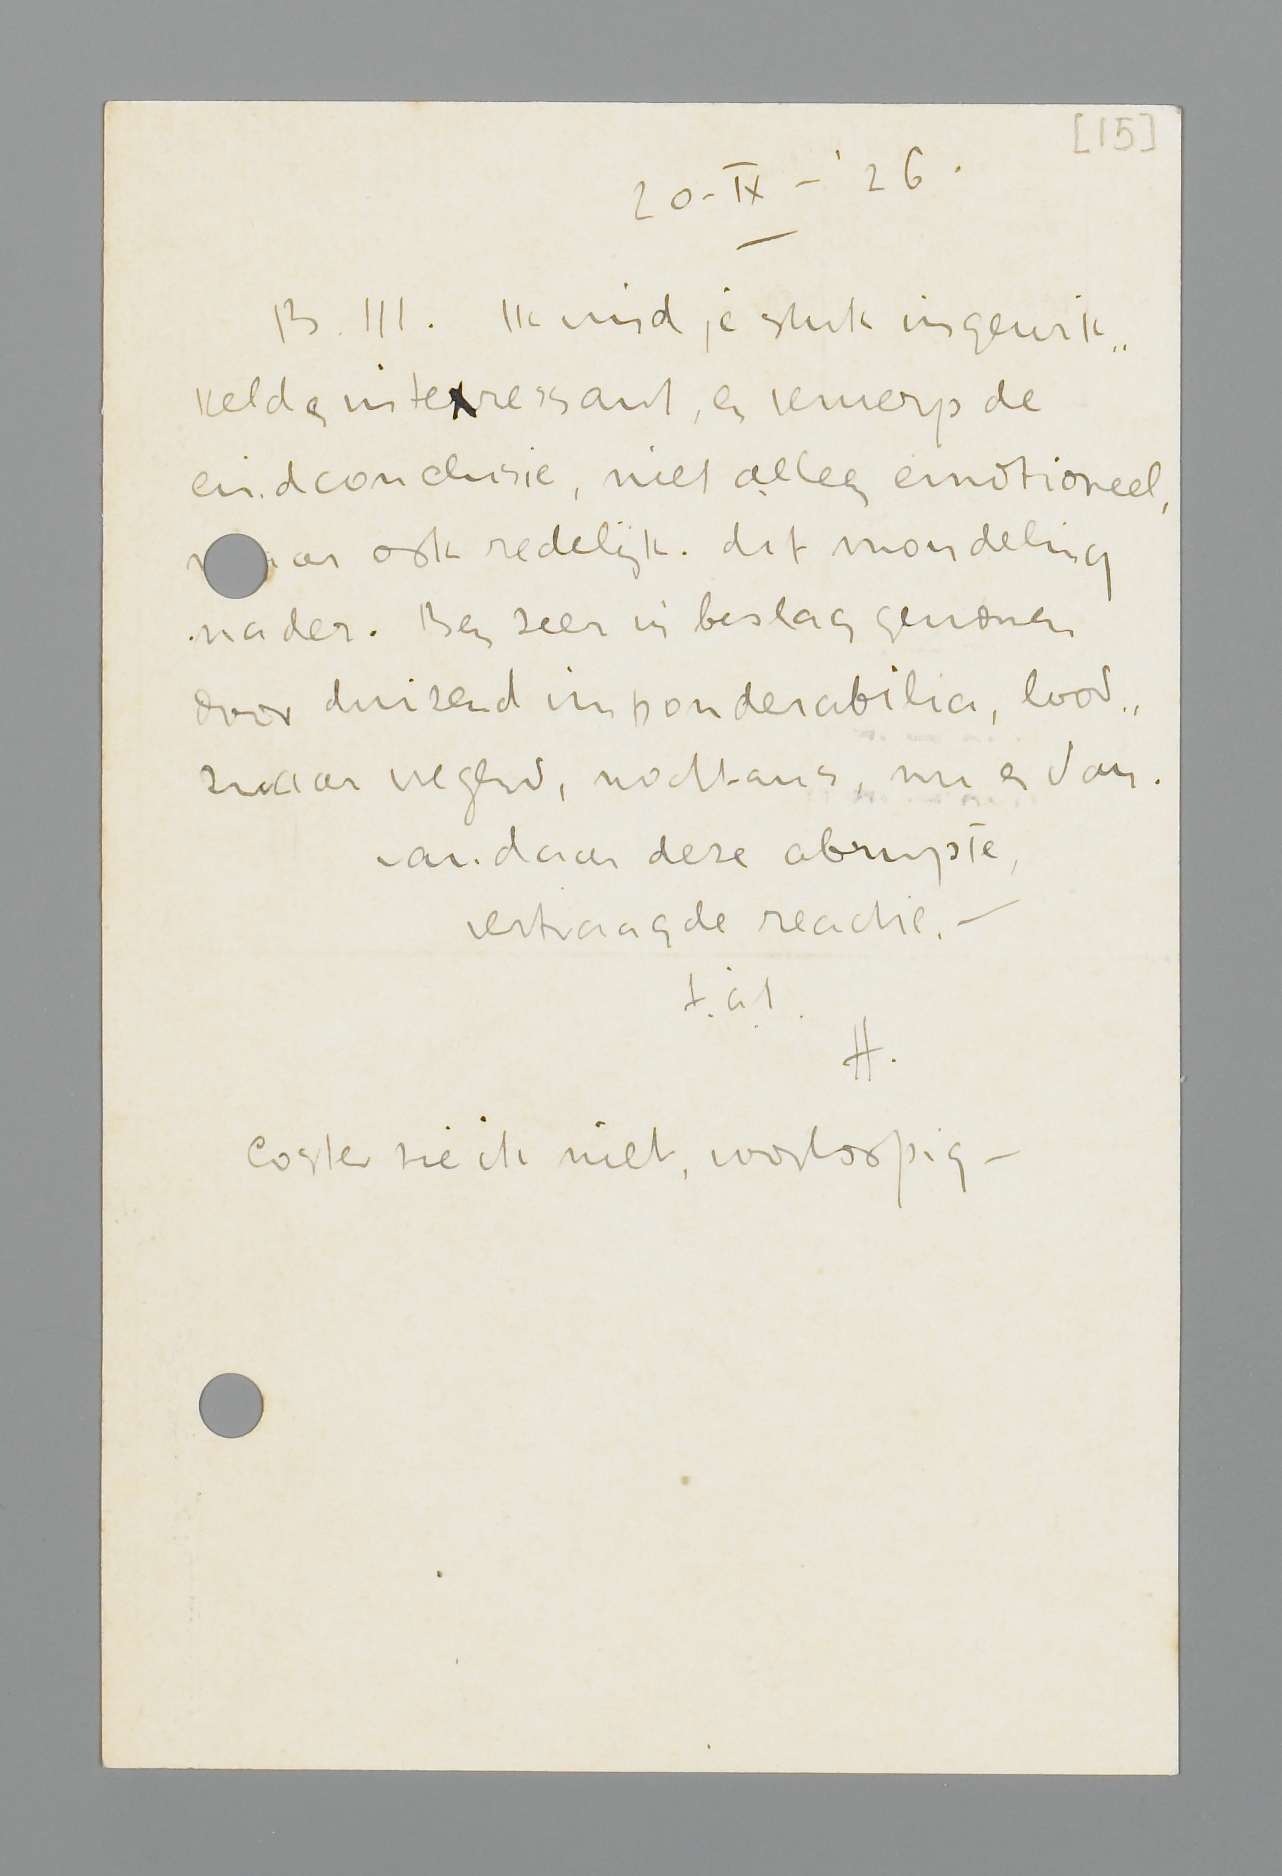 [15]
20-IX-'26.
B. III. Ik vind je stuk ingewik„
keld en interessant, en verwerp de
eindconclusie, niet alleen emotioneel,
maar ook redelijk. dit mondeling
nader. Ben zeer in beslag genomen
door duizend imponderabilia, lood„
zwaar wegend, nochtans, nu en dan.
vandaar deze abrupte,
vertraagde reactie. —
t. à t.
H.
Coster zie ik niet, voorloopig —